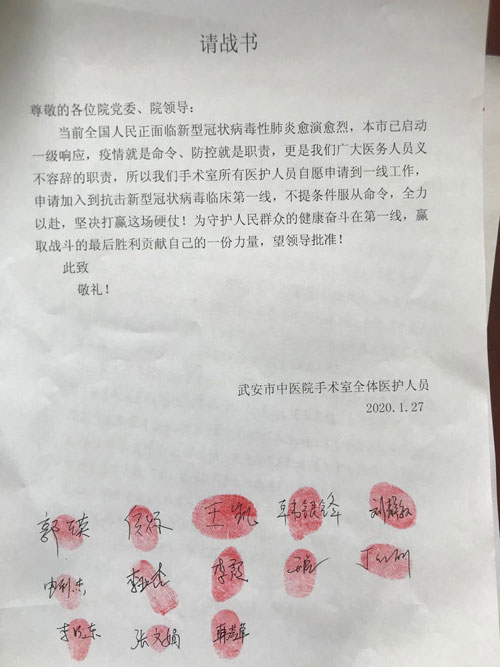 请战书
尊敬的各位院党委、院领导：
当前全国人民正面临新型冠状病毒性肺炎愈演愈烈，本市已启动
一级响应，疫情就是命令、防控就是职责，更是我们广大医务人员义
不容辞的职责，所以我们手术室所有医护人员自愿申请到一线工作，
申请加入到抗击新型冠状病毒临床第一线，不提条件服从命令，全力
以赴，坚决打赢这场硬仗！为守护人民群众的健康奋斗在第一线，赢
取战斗的最后胜利贡献自己的一份力量，望领导批准！
此致
敬礼！
武安市中医院手术室全体医护人员
2020.1.27
韩银锋
李霞
张文娟